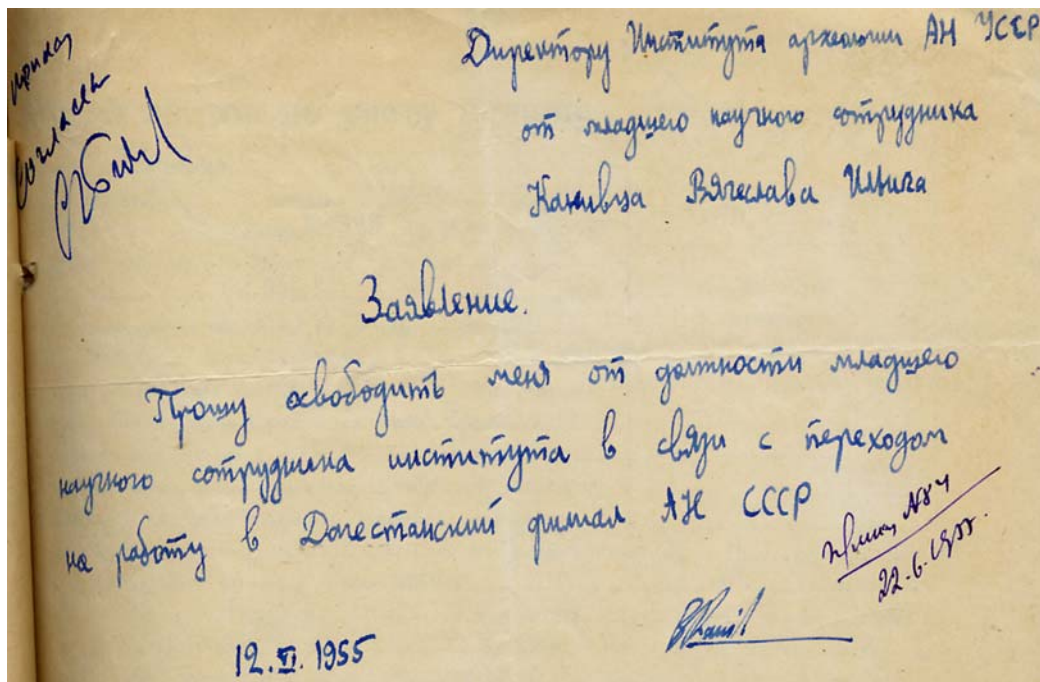 приказ
Согласен
Директору Института археологии АН УССР
от младшего научного сотрудника
Канивца Вячеслава Ильича
Заявление.
Прошу освободить меня от должности младшего
научного сотрудника института в связи с переходом
на работу в Дагестанский филиал АН СССР
приказ №84
22.6.1955.
12.VI.1955